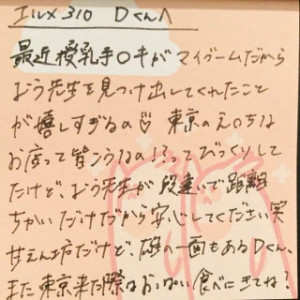 エルメ310 Dくんへ
最近授乳手〇キがマイブームだから
おう先生を見つけ出してくれたこと
が嬉しすぎるの♡ 東京のえ〇ちは
お店って皆こうなの!?ってびっくりして
たけど、おう先生が段違いで距離
ちかいだけだから安心してください笑
甘えん坊だけど、雄の一面もあるDくん、
また東京来た際はおっぱい食べにきてね?